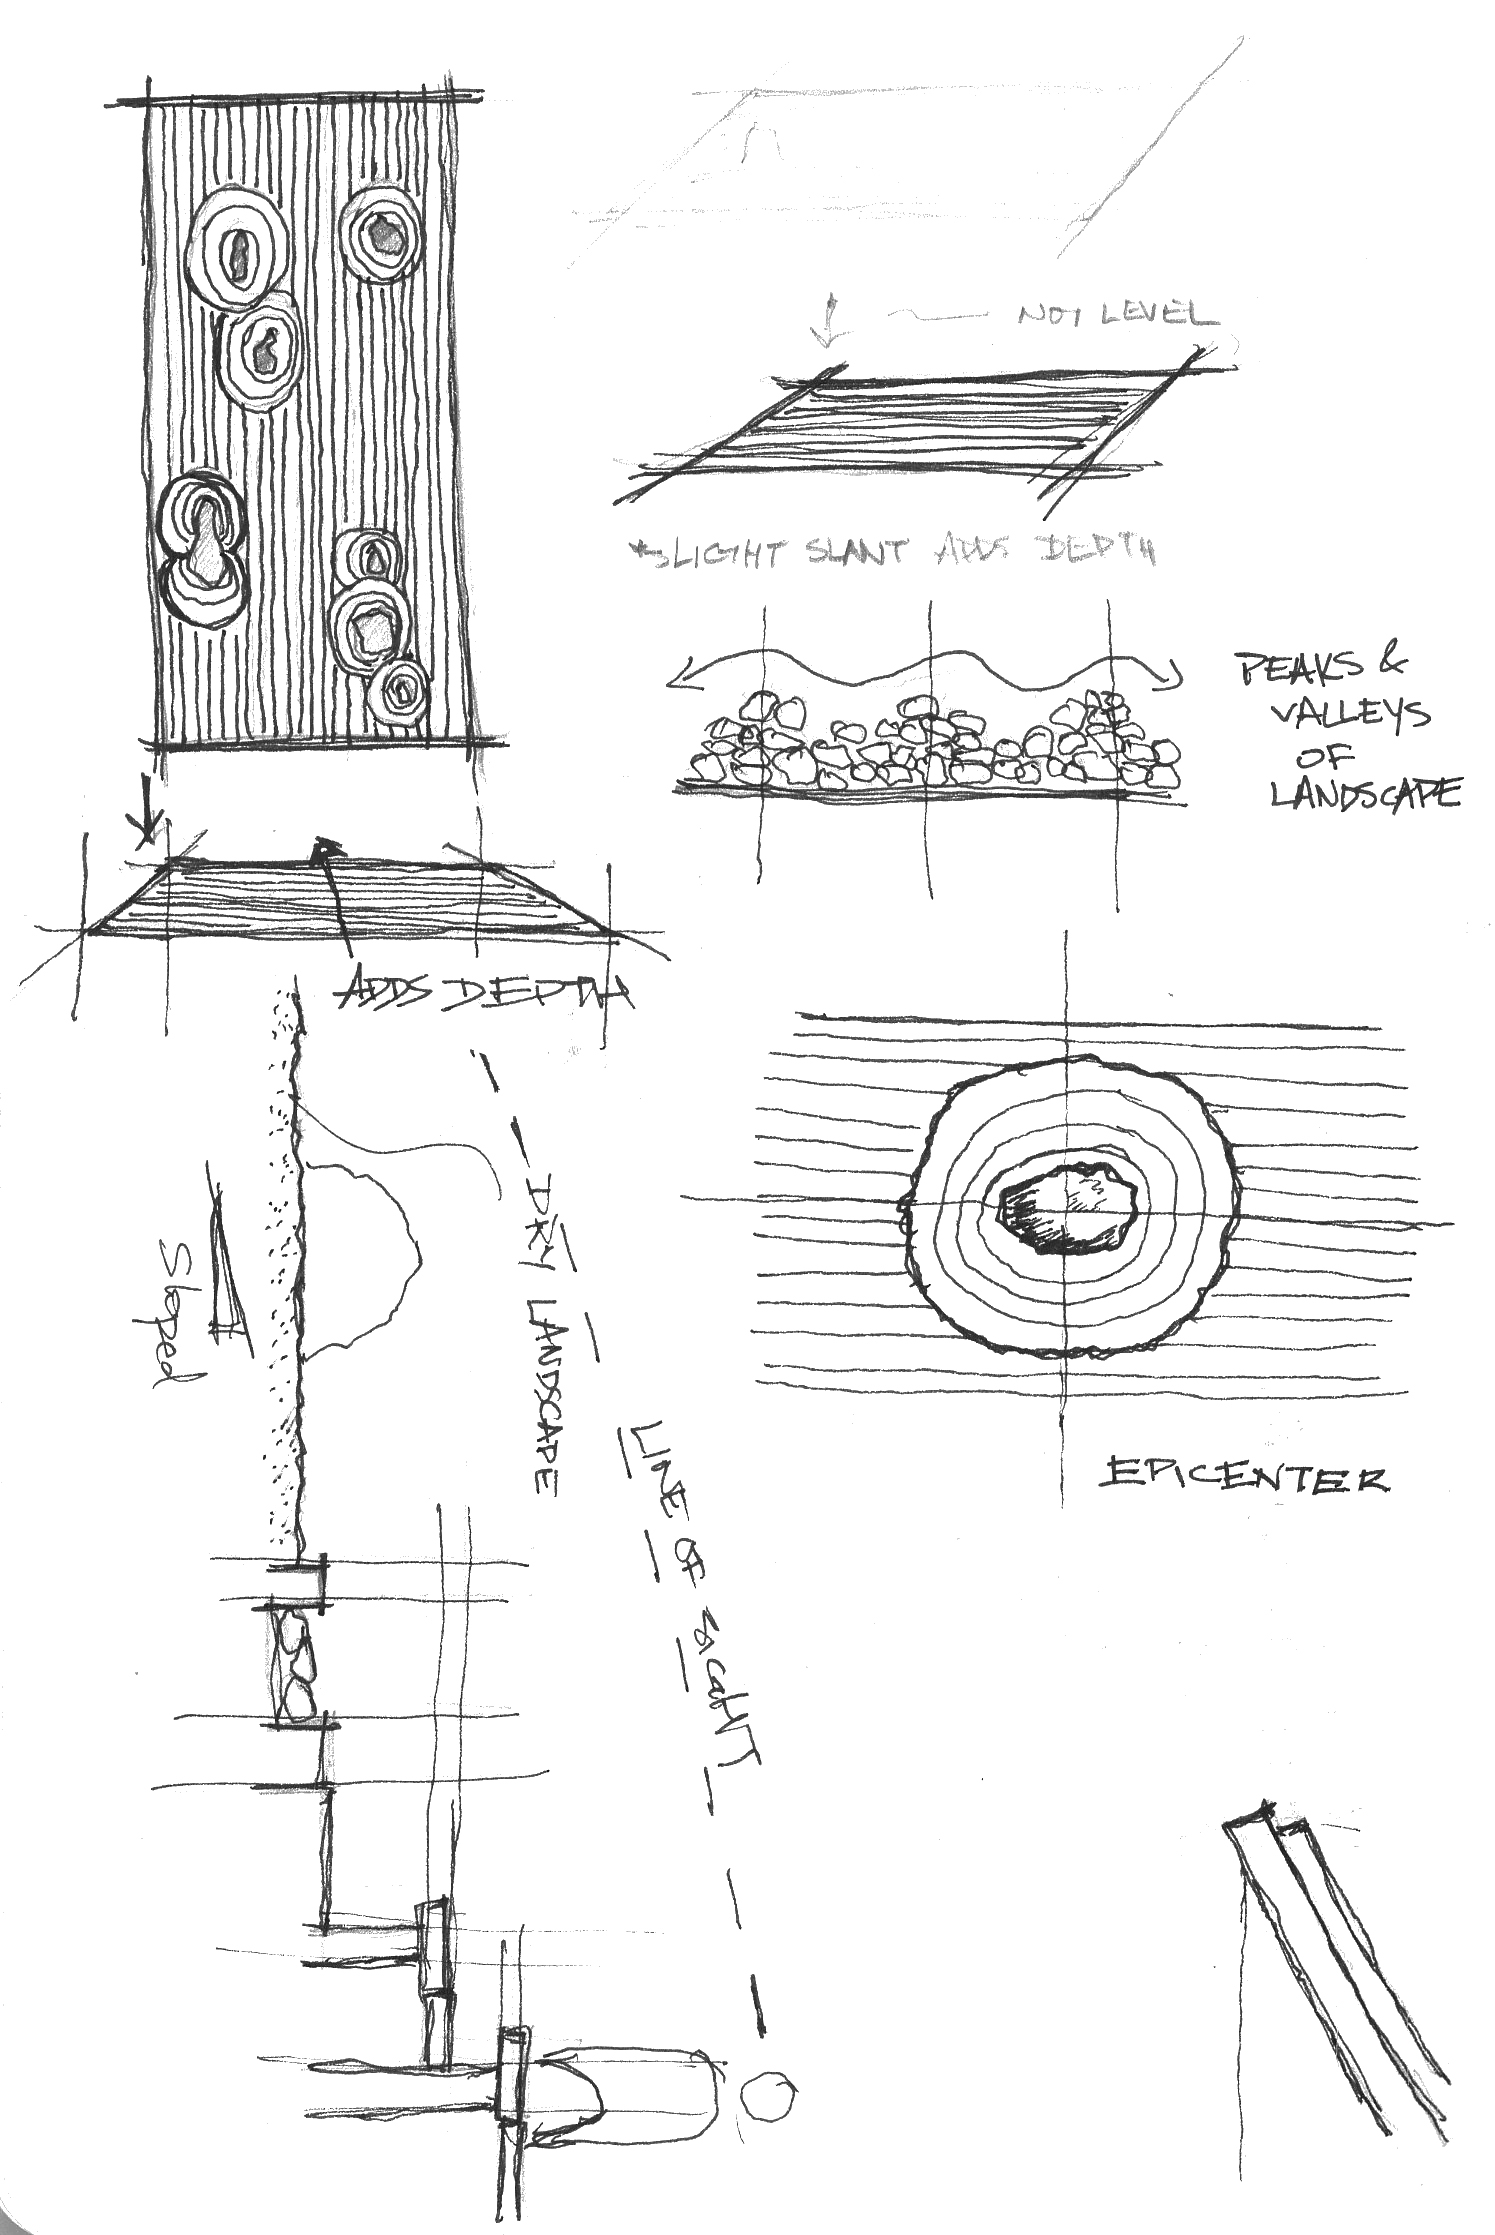 NOT LEVEL
*SLIGHT SLANT ADDS DEPTH
PEAKS &
VALLEYS
OF
LANDSCAPE
ADDS DEPTH
Sloped
DRY LANDSCAPE
LINE OF SIGHT
EPICENTER